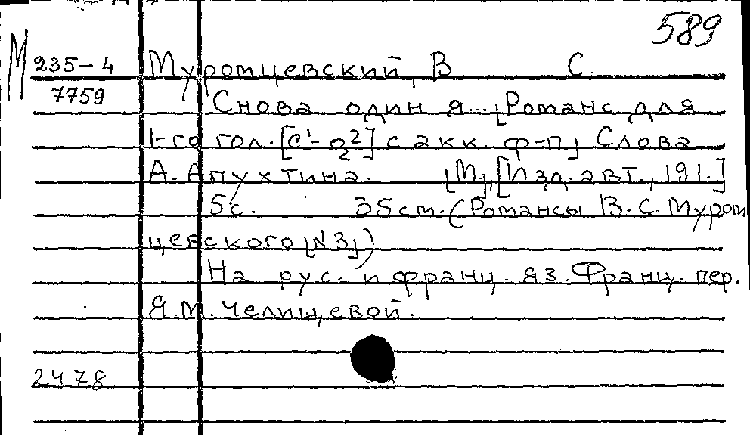 589
М 235-4 Муромцевский, В. С.
7759 Снова один я... [Романс для
1-го гол. [c¹-g²] с акк. ф-п] Слова
А. Апухтина. [М], [Изд. авт., 191.]
5с. 35см. (Романсы В. С. Муром
цевского [№3])
На рус. и франц. яз. Франц. пер.
Я. М. Челищевой.
2478